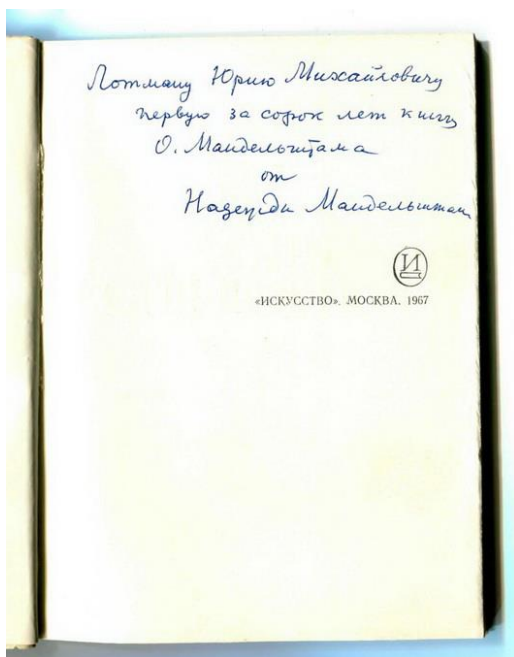 Лотману Юрию Михайловичу
первую за сорок лет книгу
О. Мандельштама
от
Надежды Мандельштам
И
«ИСКУССТВО». МОСКВА. 1967